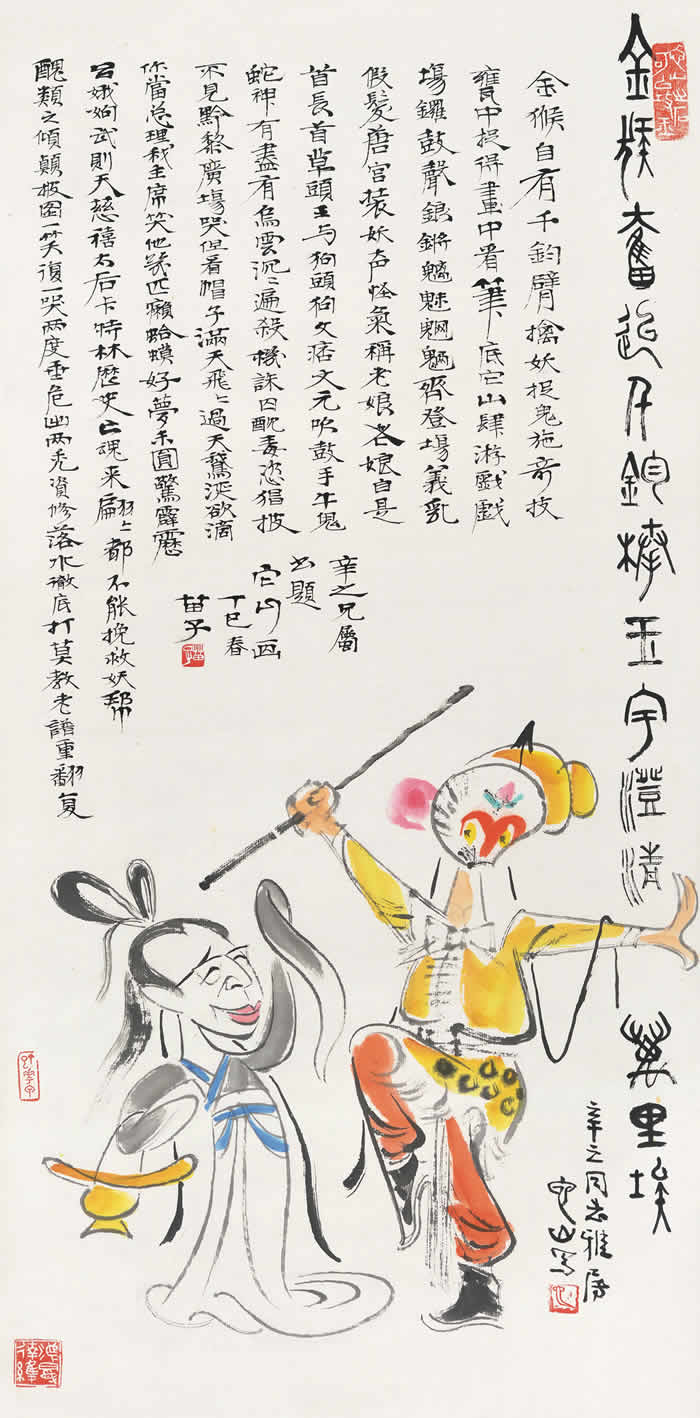 金猴奮起千鈞棒玉宇澄清萬里埃
辛之同志雅屬
它山写
金猴自有千鈞臂擒妖捉鬼施奇技
甕中捉得畫中看筆底它山肆游戲戲
場鑼鼓聲鋃鏘魑魅魍魎齊登場義乳
假髮唐宮裝妖声怪氣稱老娘老娘自是
首長首草頭王与狗頭狗文痞文元吹鼓手牛鬼
蛇神有盡有烏雲沉〻遍殺機誅囚酖毒恣猖披
不見黔黎廣場哭但看帽子滿天飛〻過天鵞涎欲滴
你當总理我主席笑他幾匹癩蛤蟆好夢未圓驚霹靂
呂娥姁武則天慈禧太后卡特林歷史亡魂来翩〻都不能挽救妖幫
醜類之傾顛披图一笑復一哭兩度垂危幽兩禿資修落水徹底打莫教老譜重翻复
辛之兄屬
題
它山画
丁巳春
苗子
苗子